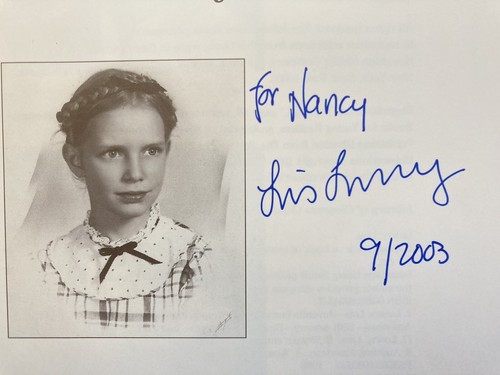 for Nancy
Lois Lowry
9/2003